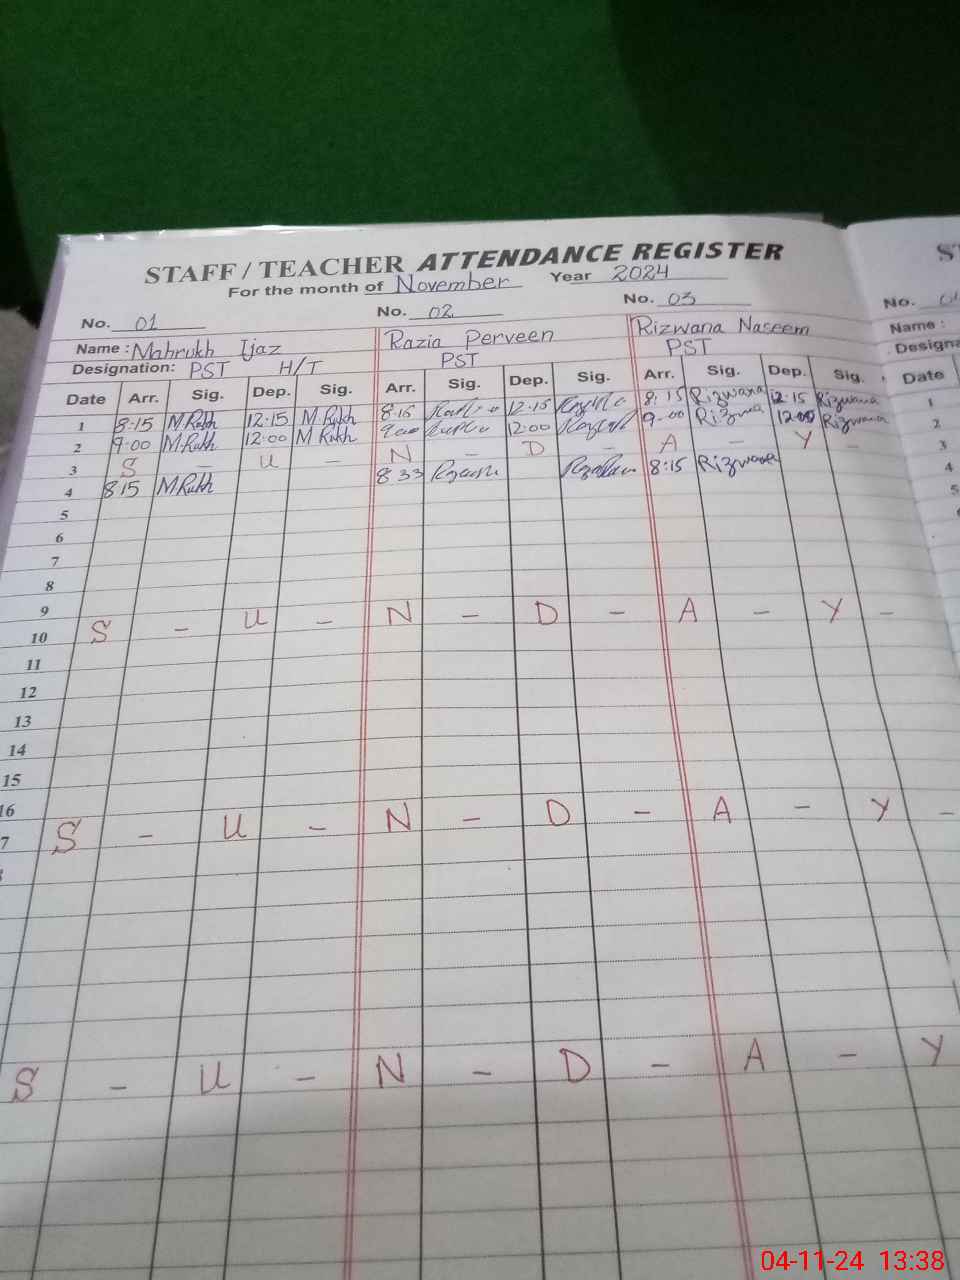 STAFF / TEACHER ATTENDANCE REGISTER
For the month of November Year 2024
No. 01 No. 02 No. 03 No.
Name : Mahrukh Ijaz Razia Perveen Rizwana Naseem Name :
Designation: PST H/T PST PST
Date Arr. Sig. Dep. Sig. Arr. Sig. Dep. Sig. Arr. Sig. Dep. Sig. Date
1 8:15 M Rukh 12:15 M Rukh 8:15 12:15 8:15 Rizwana 12:15 Rizwana 1
2 9:00 M Rukh 12:00 M Rukh 9:00 12:00 9:00 Rizwana 12:00 Rizwana 2
3 S - U - N - D - A - Y - 3
4 8:15 M Rukh 8 33 8:15 Rizwana 4
5 5
6
7
8
9
10 S - U - N - D - A - Y -
11
12
13
14
15
16
7 S - U - N - D - A - Y -
S - U - N - D - A - Y
04-11-24 13:38